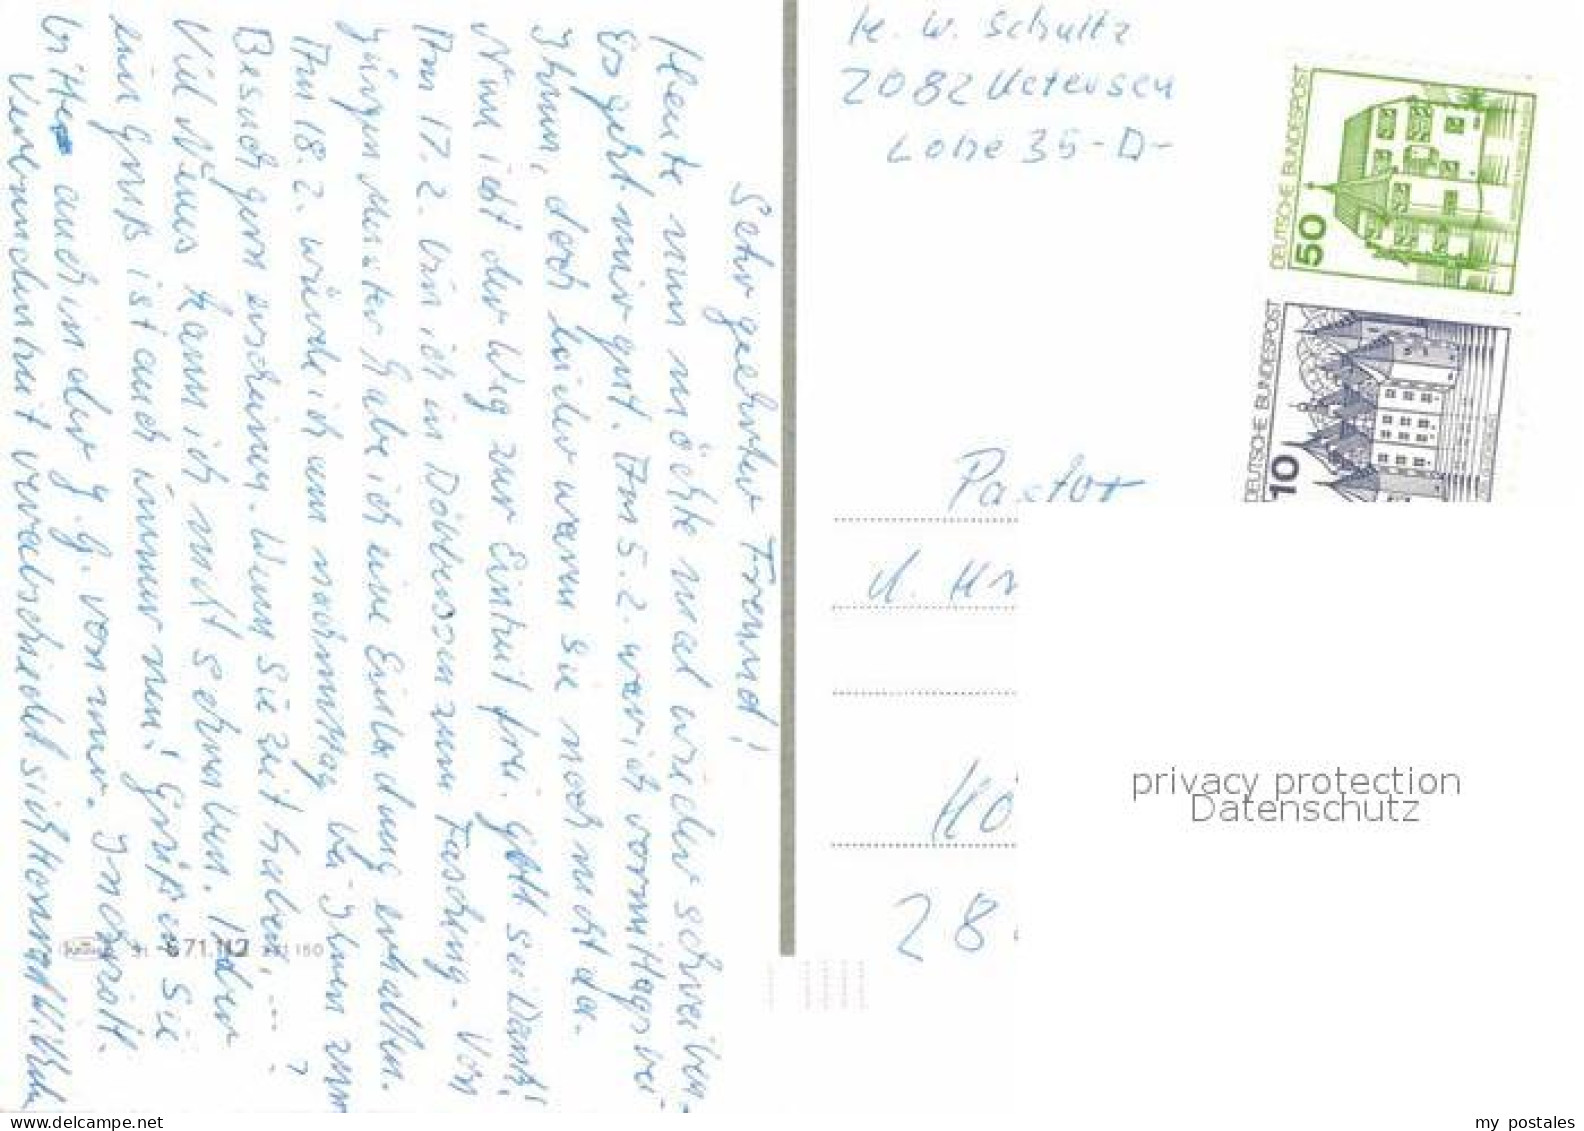 Sehr geehrter Freund!
Heute nun möchte mal wieder schreiben.
Es geht mir gut. Am 5.2. war ich vormittags bei
Ihnen, doch leider waren Sie noch nicht da.
Nun ist der Weg zur Eintritt frei. Gott sei Dank!
Am 17.2. bin ich in Döbbersen zum Fasching. Von
Jürgen Meister habe ich eine Einladung erhalten.
Am 18.2. würde ich am nachmittag bei Ihnen zum
Besuch gern erscheinen. Wenn Sie Zeit haben, .... ?
Viel Neues kann ich nicht schreiben. Aber
ein Gruß ist auch immer mein! Grüßen Sie
bitte auch in der J.G. von mir. In
Verbunden mit verabschiedet sich Konrad Wilhelm
H. W. Schultz
2082 Uetersen
Lohe 35 -D-
DEUTSCHE BUNDESPOST
50
DEUTSCHE BUNDESPOST
10
Pastor
28
671.112
privacy protection
Datenschutz
my postales